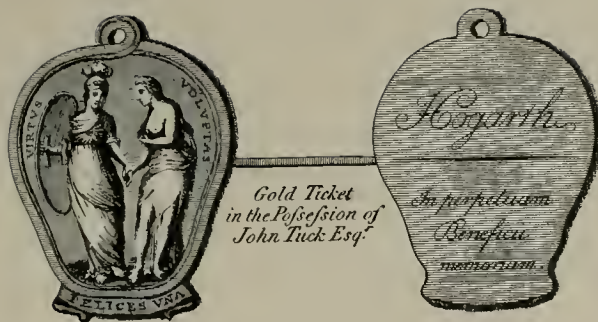 VIRTVS
VOLVPTAS
FELICES VNA
Gold Ticket
in the Poſseſsion of
John Tuck Esqr.
Hogarth
In perpetuam
Beneficii
memoriam.